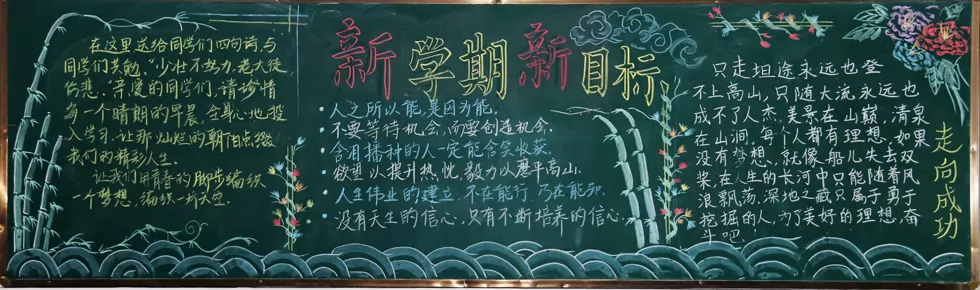 在这里送给同学们四句诗,与
同学们共勉“少壮不努力,老大徒
伤悲. 亲爱的同学们,请珍惜
每一个晴朗的早晨,全身心地投
入学习,让那灿烂的朝阳点缀
我们的精彩人生.
让我们用青春的脚步编织
一个梦想,编织一片天空.
新学期新目标
·人之所以能,是因为能.
·不要等待机会,而要创造机会.
·含泪播种的人一定能含笑收获.
·欲望以提升热忱,毅力以磨平高山.
·人生伟业的建立,不在能知,乃在能行.
·没有天生的信心,只有不断培养的信心.
只走坦途永远也登
不上高山,只随大流永远也
成不了人杰.美景在山巅,清泉
在山涧,每个人都有理想,如果
没有梦想、就像船儿失去双
桨,在人生的长河中只能随着风
浪飘荡,深地之藏只属于勇于
挖掘的人,为了美好的理想,奋
斗吧.
走向成功